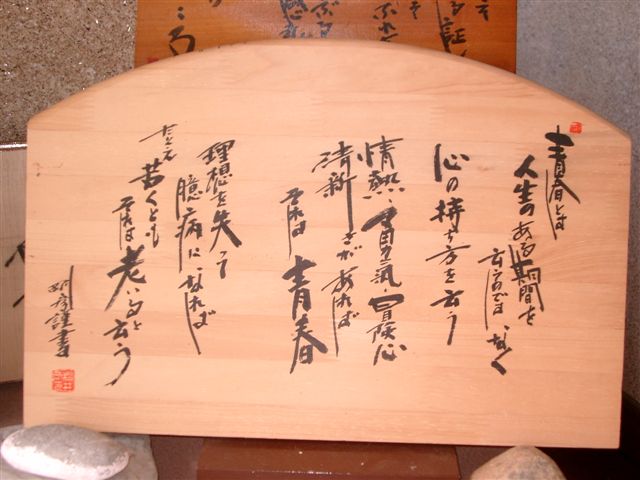 青春とは
人生のある期間を
云うのではなく
心の持ち方を云う
情熱、勇氣、冒険心
清新さがあれば
それは青春
理想を失って
臆病になれば
たとえ若くとも
それは老いると云う
謹書